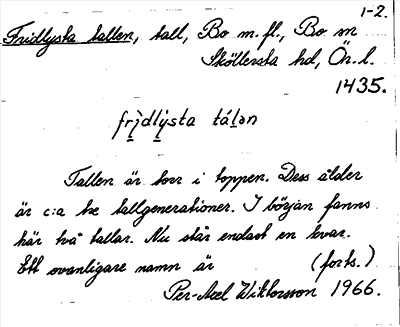 1-2.
Fridlysta tallen, tall, Bo m.fl., Bo sn
Sköllersta hd, Ör. l.
1435.
frìdlýsta tálən
Tallen är torr i toppen. Dess ålder
är c:a tre tallgenerationer. I början fanns
här två tallar. Nu står endast en kvar.
Ett ovanligare namn är (forts.)
Per-Axel Wiktorsson 1966.